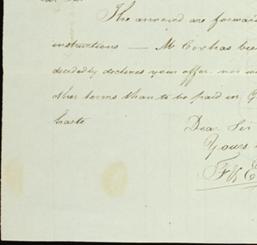 The annexed are forward
instructions — Mr Cox has been
decidedly declines your offer. nor
other terms than to be paid in
Dear Sir
Yours